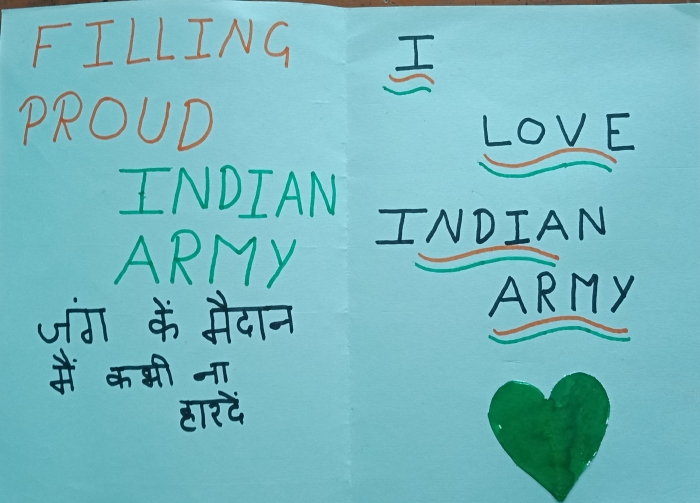 FILLING
PROUD
INDIAN
ARMY
जंग कें मैदान
मैं कभी ना
हारदें
I
LOVE
INDIAN
ARMY